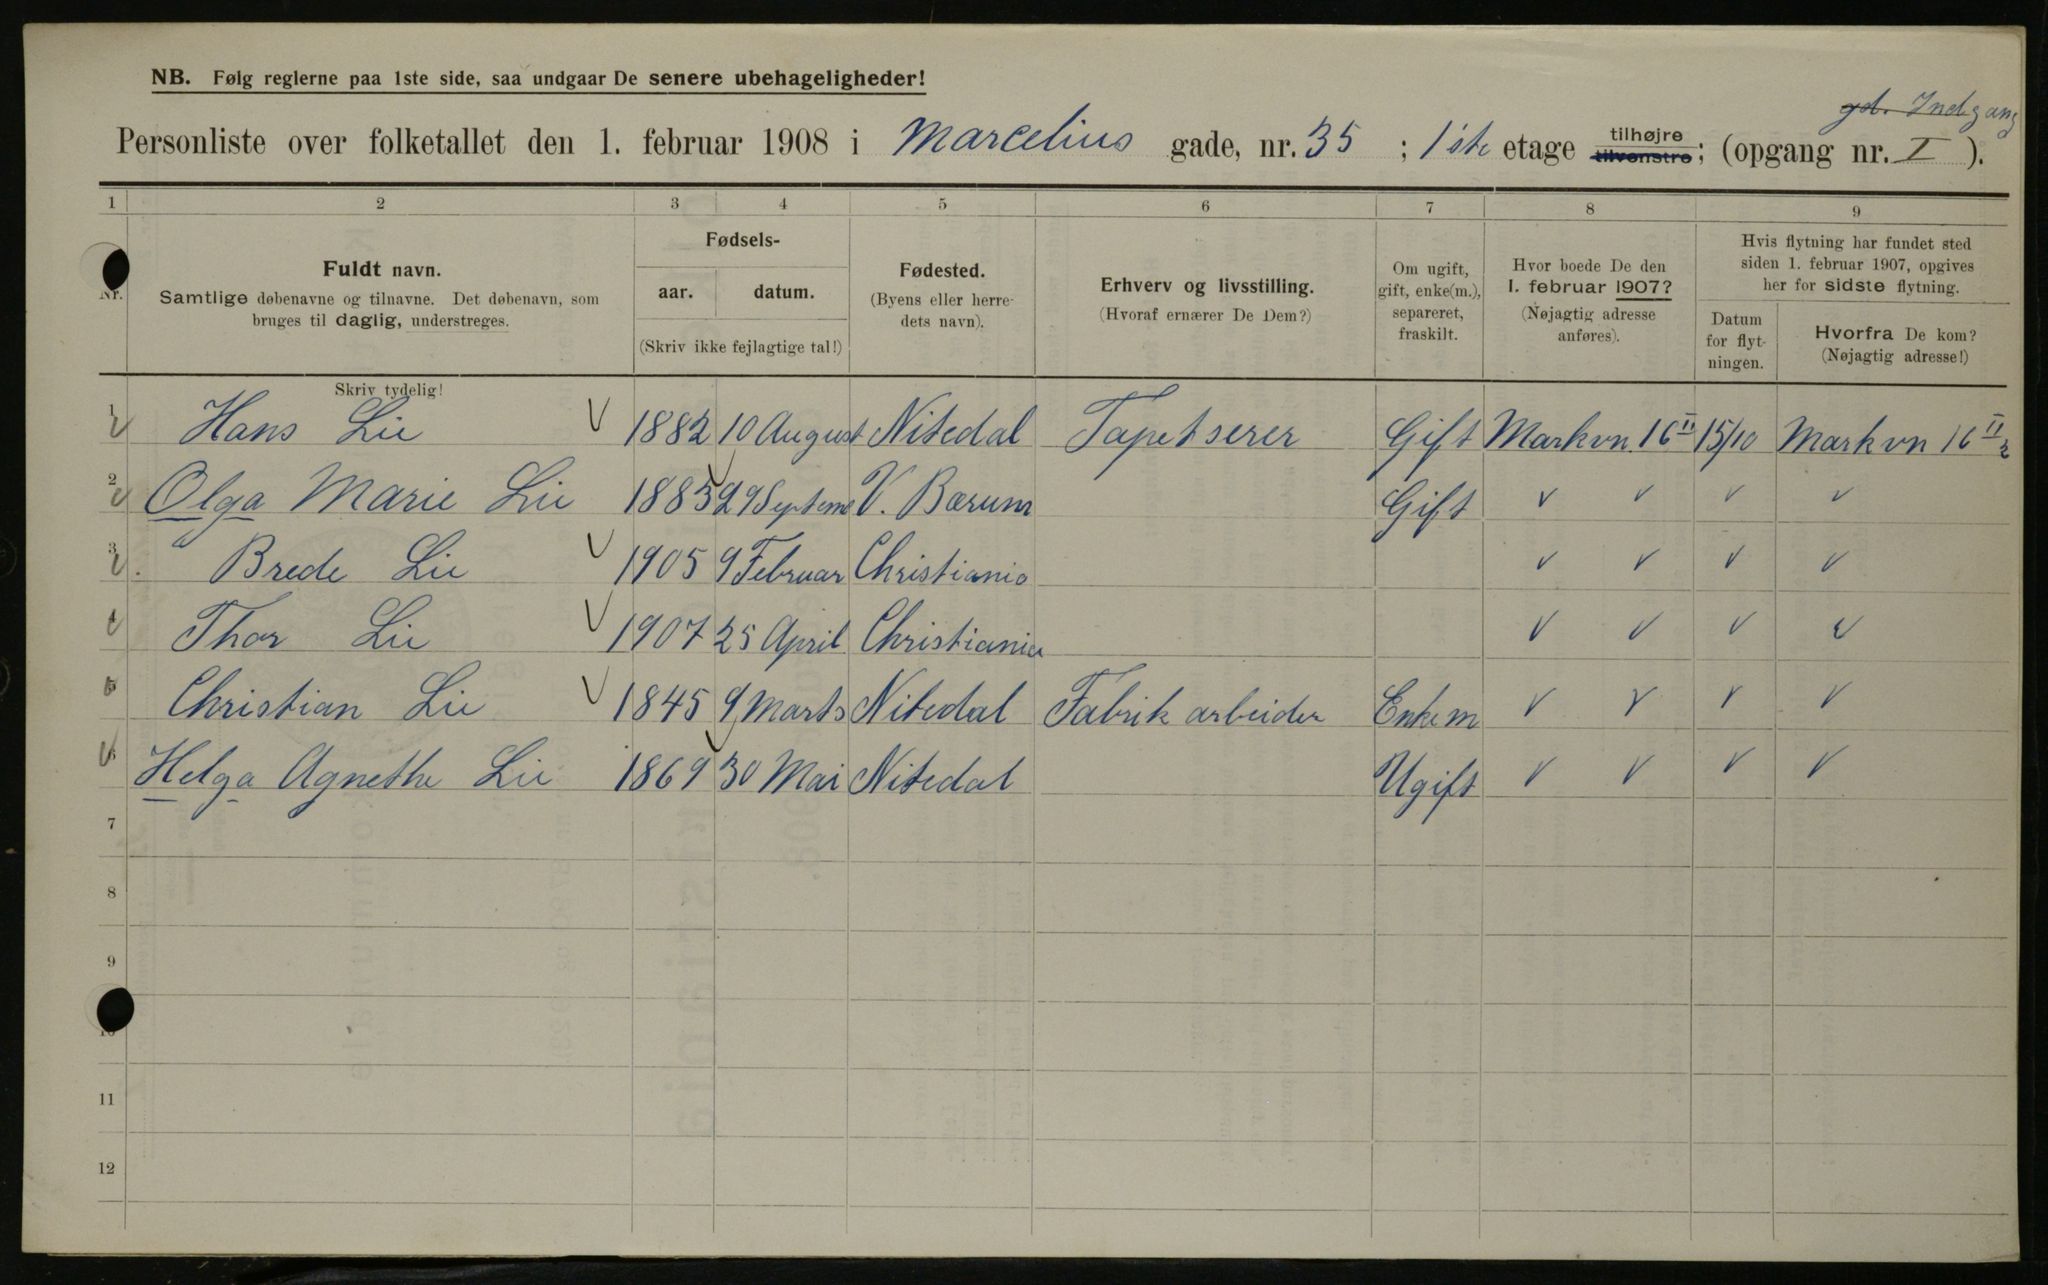 NB. Følg reglerne paa 1ste side, saa undgaar De senere ubehageligheder!
gd. Indgang
Personliste over folketallet den 1. februar 1908 i Marcelius gade, nr. 35 ; 1ste etage tilhøjre tilvenstre; (opgang nr. I ).
1 2 3 4 5 6 7 8 9
Nr.
Fuldt navn.
Samtlige døbenavne og tilnavne. Det døbenavn, som
bruges til daglig, understreges.
Skriv tydelig!
Fødsels-
aar. datum.
(Skriv ikke fejlagtige tal!)
Fødested.
(Byens eller herre-
dets navn).
Erhverv og livsstilling.
(Hvoraf ernærer De Dem?)
Om ugift,
gift, enke(m.),
separeret,
fraskilt.
Hvor boede De den
1. februar 1907?
(Nøjagtig adresse
anføres).
Hvis flytning har fundet sted
siden 1. februar 1907, opgives
her for sidste flytning.
Datum
for flyt-
ningen.
Hvorfra De kom?
(Nøjagtig adresse!)
1 Hans Lie 1882 10 August Nitedal Tapetserer Gift Markvn. 16 II 15/10 Markvn 16 II
2 Olga Marie Lie 1883 29 Septemb V. Bærum Gift
3 Brede Lie 1905 9 Februar Christiania
4 Thor Lie 1907 25 April Christiania
5 Christian Lie 1845 9 Marts Nitedal Fabrik arbeider Enkem
6 Helga Agnethe Lie 1869 30 Mai Nitedal Ugift
7
8
9
10
11
12